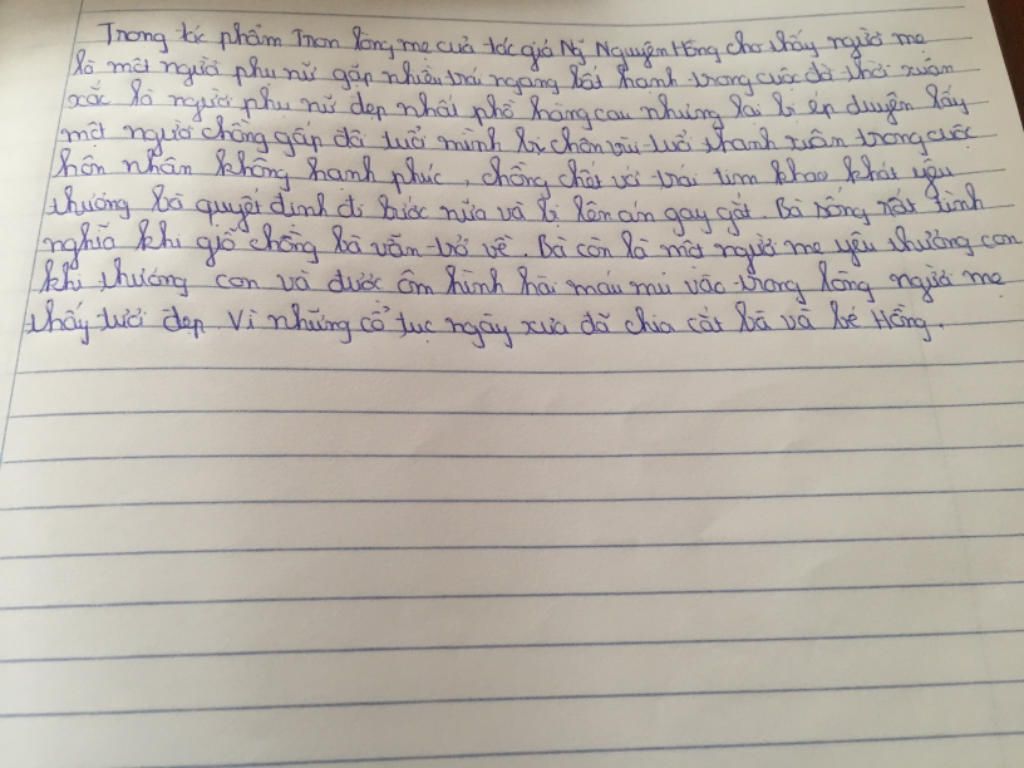 Trong tác phẩm Tron lòng mẹ của tác giả Ng Nguyên Hồng cho thấy người mẹ
là một người phụ nữ gặp nhiều trái ngang bất hạnh trong cuộc đời thời xuân
xắc là người phụ nữ đẹp nhất phố hàng cau nhưng lại bị ép duyên lấy
một người chồng gấp đôi tuổi mình bị chôn vùi tuổi thanh xuân trong cuộc
hôn nhân không hạnh phúc, chồng chết với trái tim khao khát yêu
thương bà quyết định đi bước nữa và bị lên án gay gắt. Bà sống rất tình
nghĩa khi giỗ chồng bà vẫn trở về. Bà còn là một người mẹ yêu thương con
khi thương con và được ôm hình hài máu mủ vào trong lòng người mẹ
thấy tươi đẹp Vì những cổ tục ngày xưa đã chia cắt bà và bé Hồng.